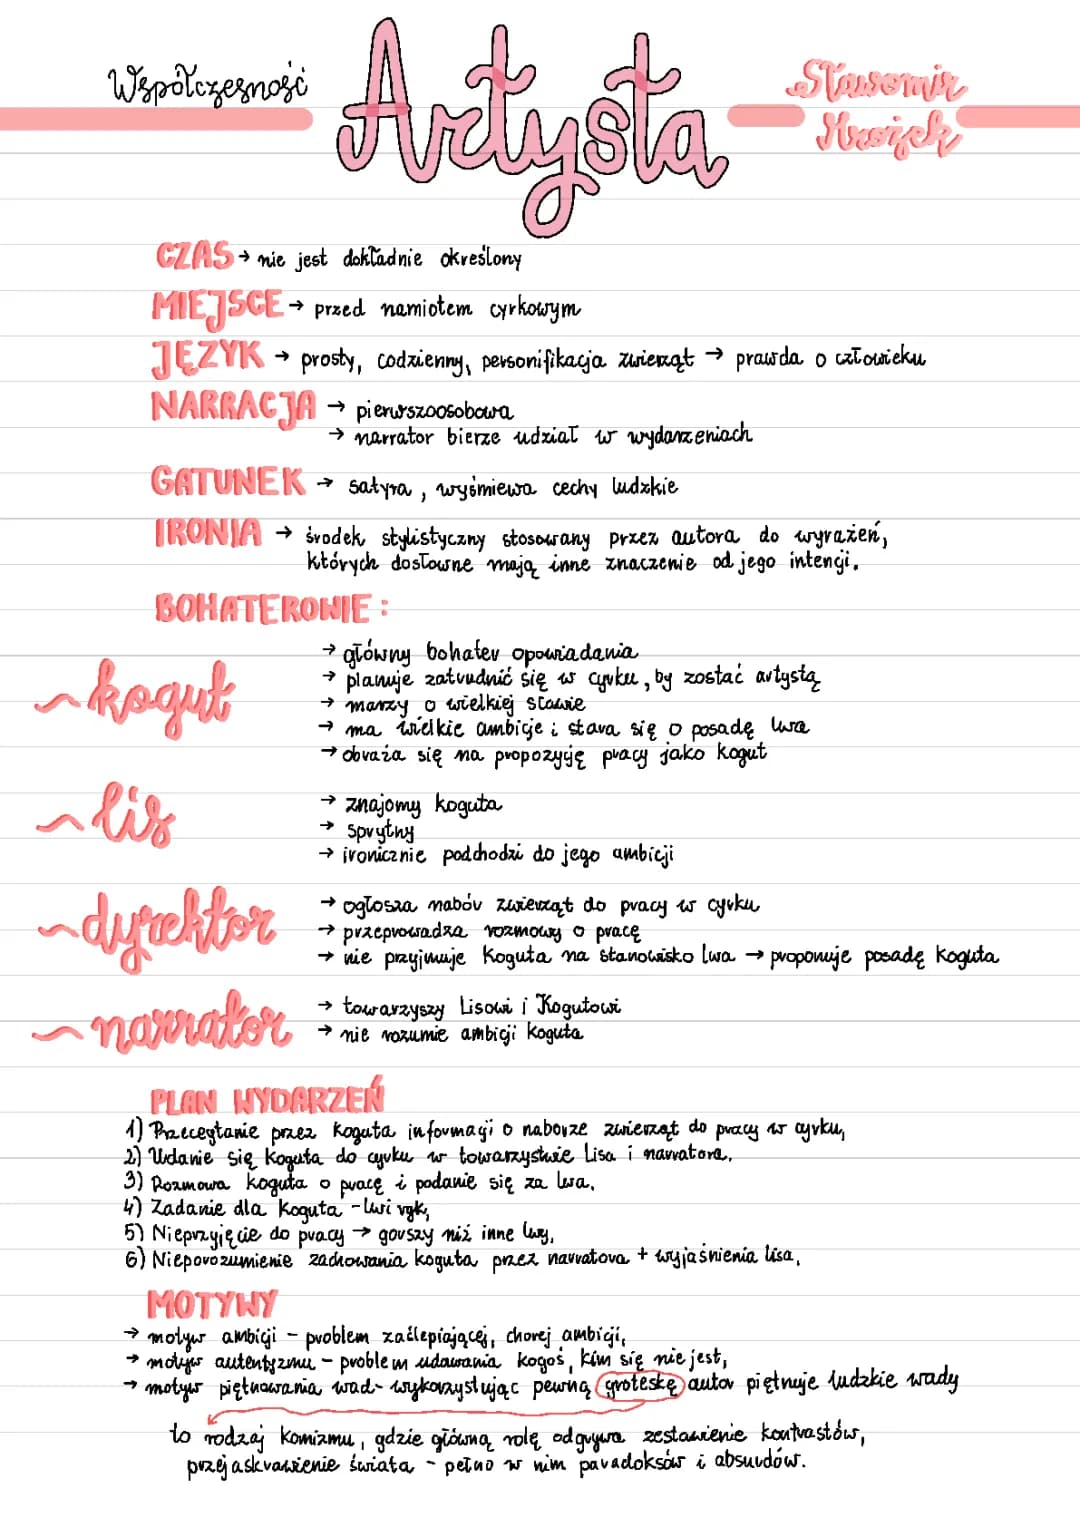 Współczesność
Artysta
Sławomir
Mrożek
CZAS → nie jest dokładnie określony
MIEJSCE → przed namiotem cyrkowym
JĘZYK → prosty, codzienny, personifikacja zwierząt → prawda o człowieku
NARRACJA → pierwszoosobowa
→ narrator bierze udział w wydarzeniach
GATUNEK → satyra, wyśmiewa cechy ludzkie
IRONIA → środek stylistyczny stosowany przez autora do wyrażeń,
których dosłowne mają inne znaczenie od jego intencji.
BOHATEROWIE:
~kogut
→ główny bohater opowiadania
→ planuje zatrudnić się w cyrku, by zostać artystą
→ marzy o wielkiej sławie
→ ma wielkie ambicje i stara się o posadę lwa
→ obraża się na propozycję pracy jako kogut
~lis
→ znajomy koguta
→ sprytny
→ ironicznie podchodzi do jego ambicji
~dyrektor
→ ogłosza nabór zwierząt do pracy w cyrku
→ przeprowadza rozmowy o pracę
→ nie przyjmuje Koguta na stanowisko lwa → proponuje posadę koguta
~narrator
→ towarzyszy Lisowi i Kogutowi
→ nie rozumie ambicji koguta
PLAN WYDARZEŃ
1) Przeczytanie przez Koguta informacji o naborze zwierząt do pracy w cyrku,
2) Udanie się Koguta do cyrku w towarzystwie Lisa i narratora,
3) Rozmowa koguta o pracę i podanie się za lwa,
4) Zadanie dla koguta - lwi ryk,
5) Nieprzyjęcie do pracy → gorszy niż inne lwy,
6) Nieporozumienie zachowania koguta przez narratora + wyjaśnienia lisa,
MOTYWY
→ motyw ambicji - problem zaślepiającej, chorej ambicji,
→ motyw autentyzmu - problem udawania kogoś, kim się nie jest,
→ motyw piętnowania wad - wykorzystując pewną groteskę autor piętnuje ludzkie wady
to rodzaj komizmu, gdzie główną rolę odgrywa zestawienie kontrastów,
przejaskrawienie świata - pełno w nim paradoksów i absurdów.